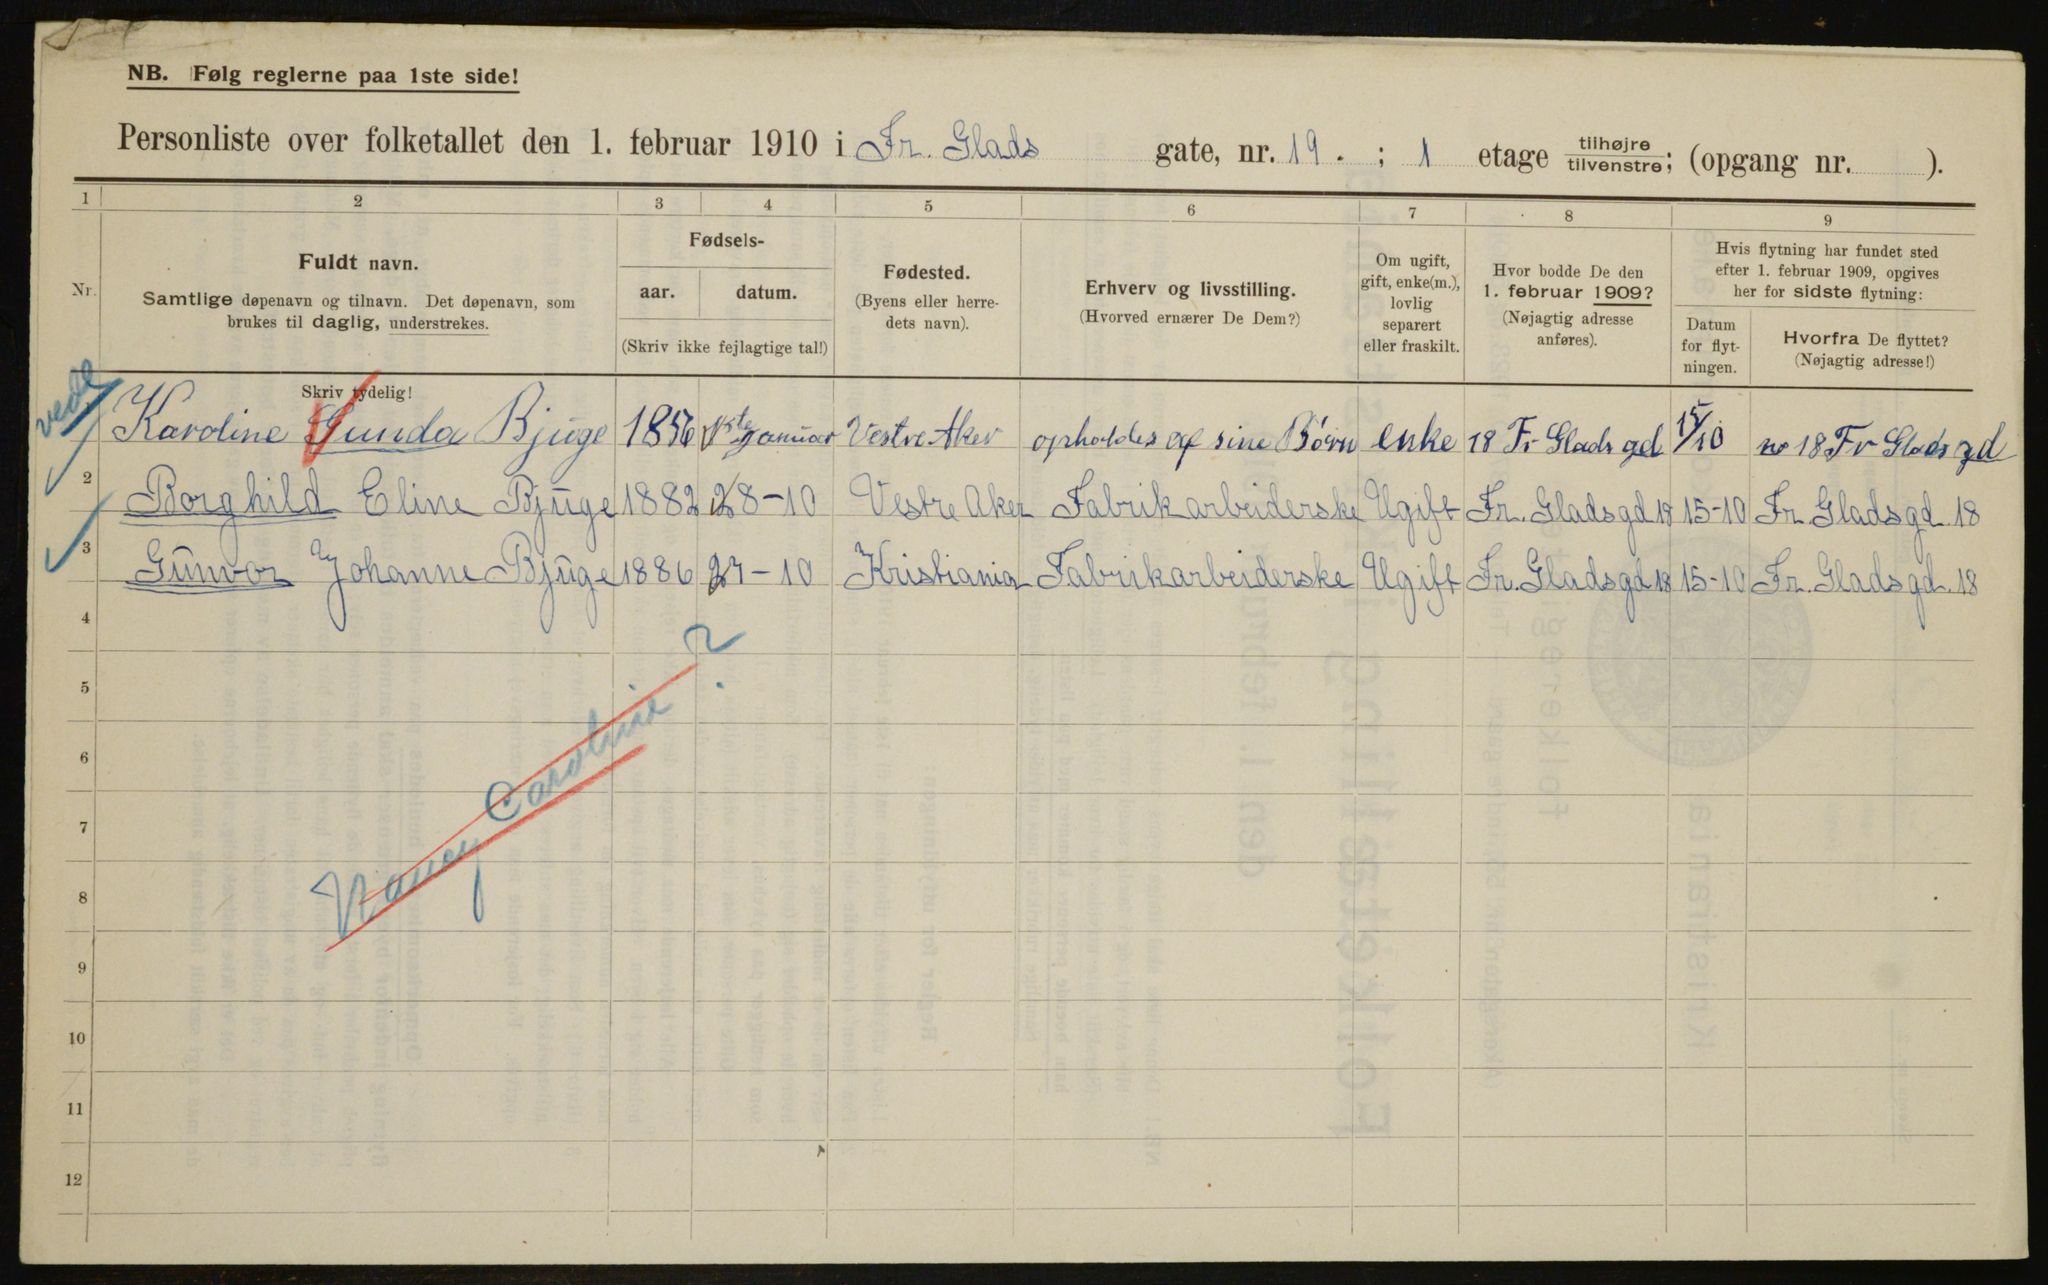 NB. Følg reglerne paa 1ste side!
Personliste over folketallet den 1. februar 1910 i Fr. Glads gate, nr. 19. ; 1 etage tilhøjre/tilvenstre; (opgang nr. ).
1 2 3 4 5 6 7 8 9
Nr.
Fuldt navn.
Samtlige døpenavn og tilnavn. Det døpenavn, som
brukes til daglig, understrekes.
Skriv tydelig!
Fødsels-
aar. datum.
(Skriv ikke fejlagtige tal!)
Fødested.
(Byens eller herre-
dets navn).
Erhverv og livsstilling.
(Hvorved ernærer De Dem?)
Om ugift,
gift, enke(m.),
lovlig
separert
eller fraskilt.
Hvor bodde De den
1. februar 1909?
(Nøjagtig adresse
anføres).
Hvis flytning har fundet sted
efter 1. februar 1909, opgives
her for sidste flytning:
Datum
for flyt-
ningen.
Hvorfra De flyttet?
(Nøjagtig adresse!)
Karoline Gunda Bjuge 1856 1ste Januar Vestre Aker opholdes af sine Børn enke 18 Fr Glads gd 15/10 no 18 Fr Glads gd
2 Borghild Eline Bjuge 1882 28-10 Vestre Aker Fabrikarbeiderske Ugift Fr. Glads gd 18 15-10 Fr. Glads gd. 18
3 Gunvor Johanne Bjuge 1886 27-10 Kristiania Fabrikarbeiderske Ugift Fr. Glads gd 18 15-10 Fr. Glads gd. 18
4
5
6
7
8
9
10
11
12
Nancy Caroline ?